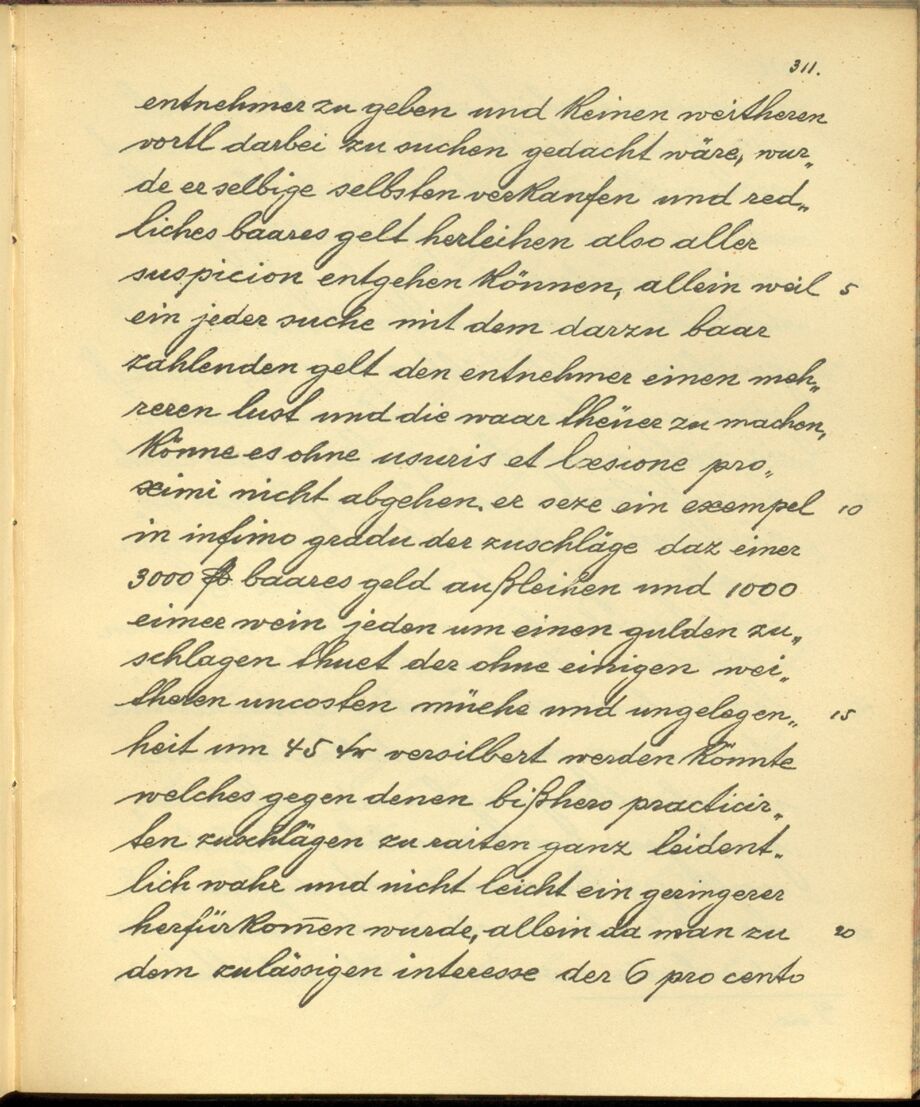 311.
entnehmer zu geben und keinen weitheren
vortl darbei zu suchen gedacht wäre, wur„
de er selbige selbsten verkaufen und red„
liches baares gelt herleihen also aller
suspicion entgehen können, allein weil 5
ein jeder suche mit dem darzu baar
zahlenden gelt den entnehmer einen meh„
reren lust und die waar theüer zu machen,
könne es ohne usuris et læsione pro„
ximi nicht abgehen. er seze ein exempel 10
in infimo gradu der zuschläge daz einer
3000 fl baares geld außleihen und 1000
eimer wein jeden um einen gulden zu„
schlagen thuet der ohne einigen wei„
theren uncosten müehe und ungelegen„ 15
heit um 45 kr versilbert werden könnte
welches gegen denen bißhero practicir„
ten zuschlägen zu raiten ganz leident„
lich wahr und nicht leicht ein geringerer
herfürkom̅en wurde, allein da man zu 20
dem zulässigen interesse der 6 pro cento